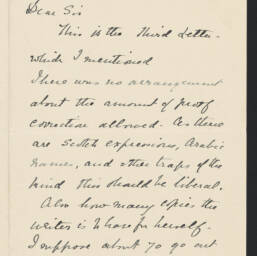 Dear Sir
This is the third letter
which I mentioned
There was no arrangement
about the amount of proof
correction allowed. As there
are Scotch expressions, Arabic
names, and other traps of this
kind this should be liberal.
Also how many copies the
writer is to have for herself.
I suppose about 70 go out